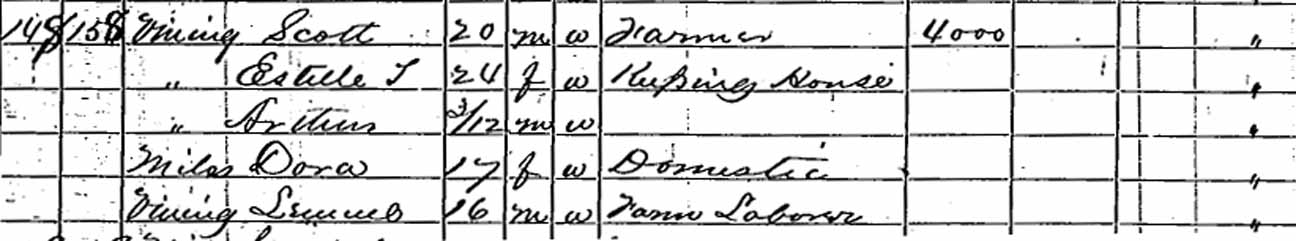 148 158 Vining Scott 20 m w Farmer 4000 "
" Estelle T 24 f w Keeping House "
" Arthur 3/12 m w "
Miles Dora 17 f w Domestic "
Vining 16 m w Farm Laborer "